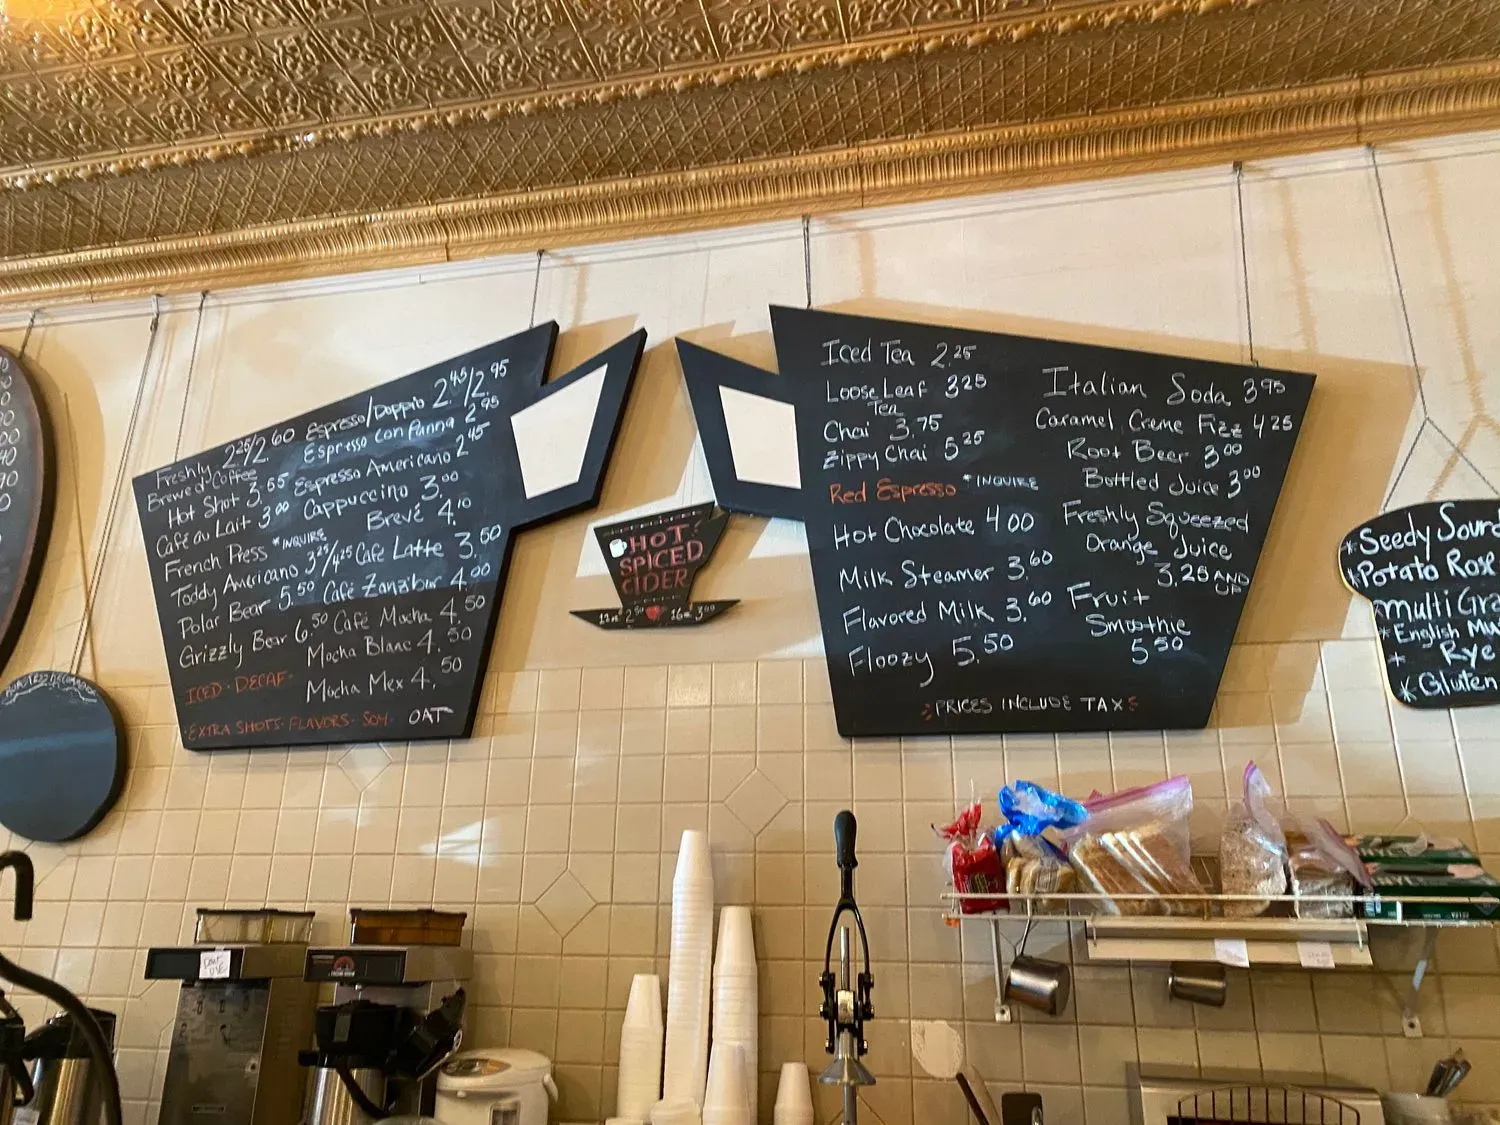 Freshly 2.25/2.60
Brewed Coffee
Hot Shot 3.55
Café au Lait 3.00
French Press *INQUIRE
Toddy Americano 3.25/4.25
Polar Bear 5.50
Grizzly Bear 6.50
ICED · DECAF·
Espresso/Doppio 2.45/2.95
Espresso con Panna 2.95
Espresso Americano 2.45
Cappuccino 3.00
Brevé 4.10
Café Latte 3.50
Café Zanzibar 4.00
Café Mocha 4.50
Mocha Blanc 4.50
Mocha Mex 4.50
·EXTRA SHOTS·FLAVORS·SOY· OAT
HOT
SPICED
CIDER
12oz 2.50 16oz 3.00
Iced Tea 2.25
Loose Leaf 3.25
Tea
Chai 3.75
Zippy Chai 5.25
Red Espresso *INQUIRE
Hot Chocolate 4.00
Milk Steamer 3.60
Flavored Milk 3.60
Floozy 5.50
Italian Soda 3.95
Caramel Creme Fizz 4.25
Root Beer 3.00
Bottled Juice 3.00
Freshly Squeezed
Orange Juice
3.25 AND UP
Fruit
Smoothie
5.50
PRICES INCLUDE TAX
*Seedy Sourd
*Potato Rose
Multi Gra
*English Mu
* Rye
*Gluten